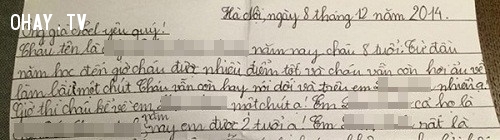 OHAY.TV
Hà Nội, ngày 8 tháng 12 năm 2014.
Ông già Noel yêu quý!
Cháu tên là năm nay cháu 8 tuổi. Từ đầu
năm học đến giờ cháu được nhiều điểm tốt và cháu vẫn còn hơi ẩu về
làm bài một chút. Cháu vẫn còn hay nói dối và trêu em nhiều ạ.
Giờ thì cháu kể về em một chút ạ! Em có họ là
năm nay em được 2 tuổi ạ! Em rất là